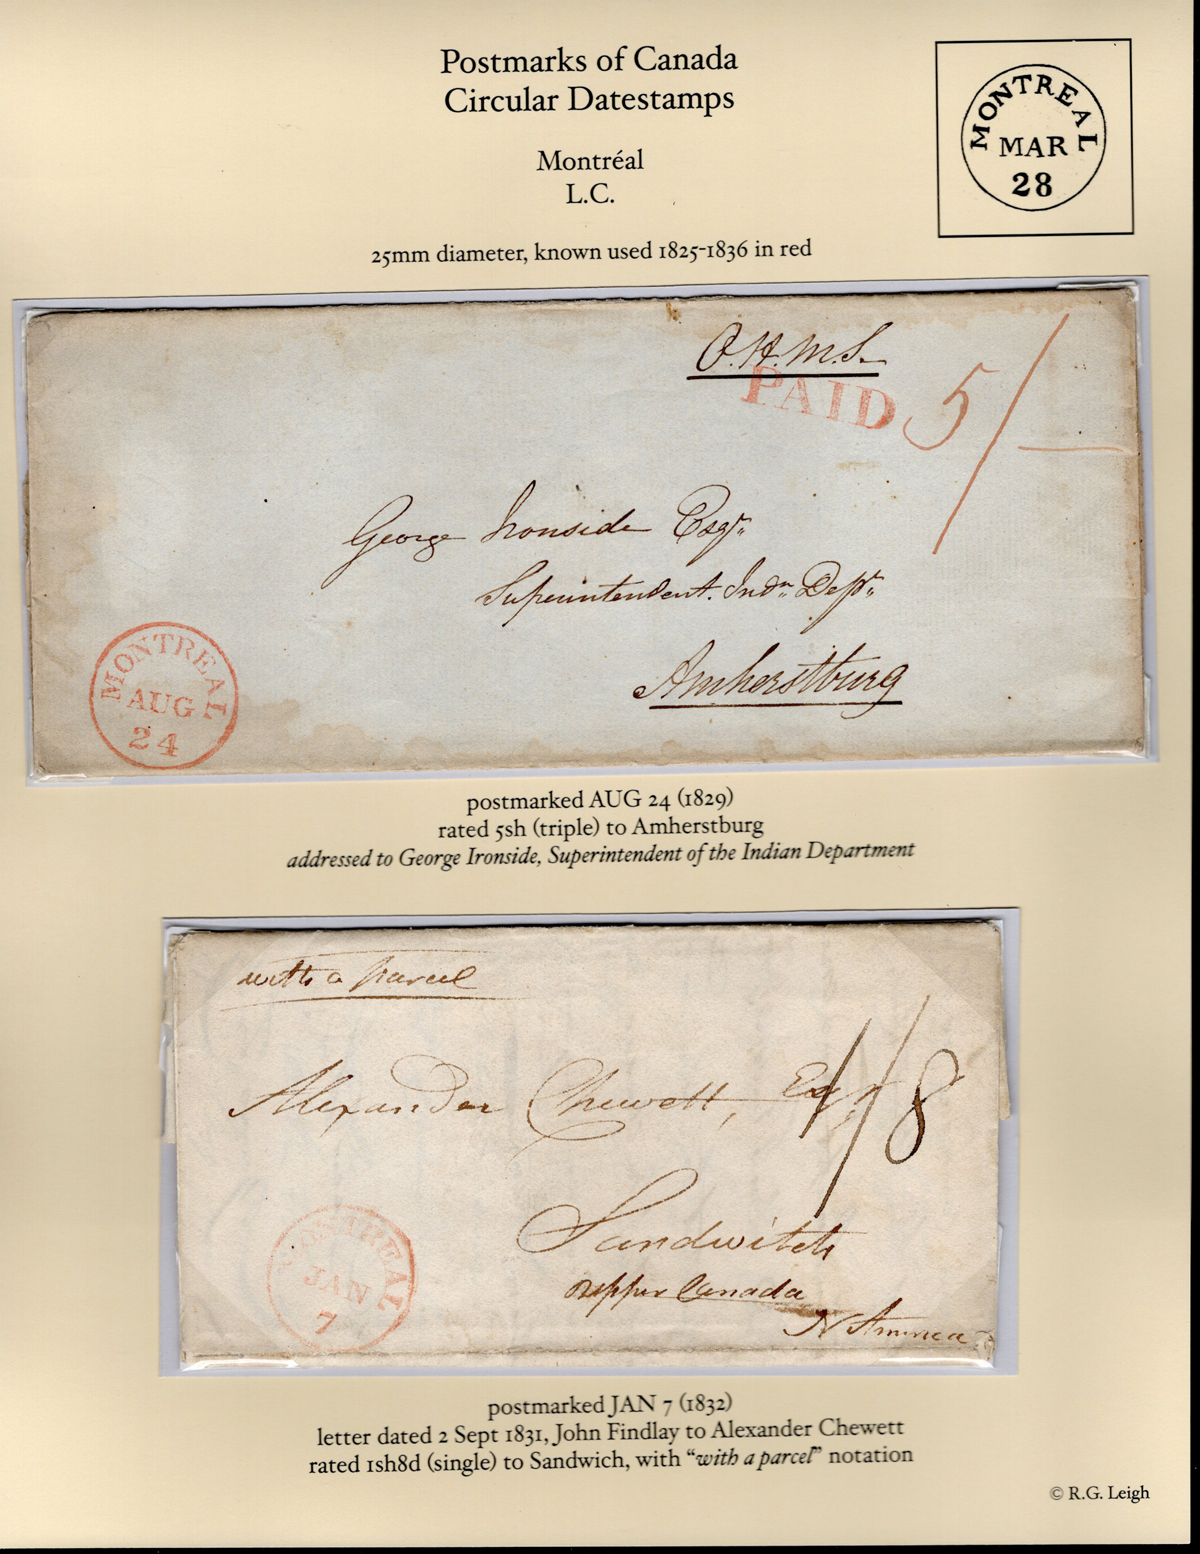 Postmarks of Canada
Circular Datestamps
Montréal
L.C.
25mm diameter, known used 1825-1836 in red
MONTREAL
MAR
28
O.H.M.S.
PAID 5/-
George Ironside Esqr.
Superintendent. Indn. Dept.
Amherstburg
MONTREAL
AUG
24
postmarked AUG 24 (1829)
rated 5sh (triple) to Amherstburg
addressed to George Ironside, Superintendent of the Indian Department
with a parcel
1/8
Alexander Chewett, Esqr
Sandwitch
upper Canada
N America
MONTREAL
JAN
7
postmarked JAN 7 (1832)
letter dated 2 Sept 1831, John Findlay to Alexander Chewett
rated 1sh8d (single) to Sandwich, with “with a parcel” notation
© R.G. Leigh